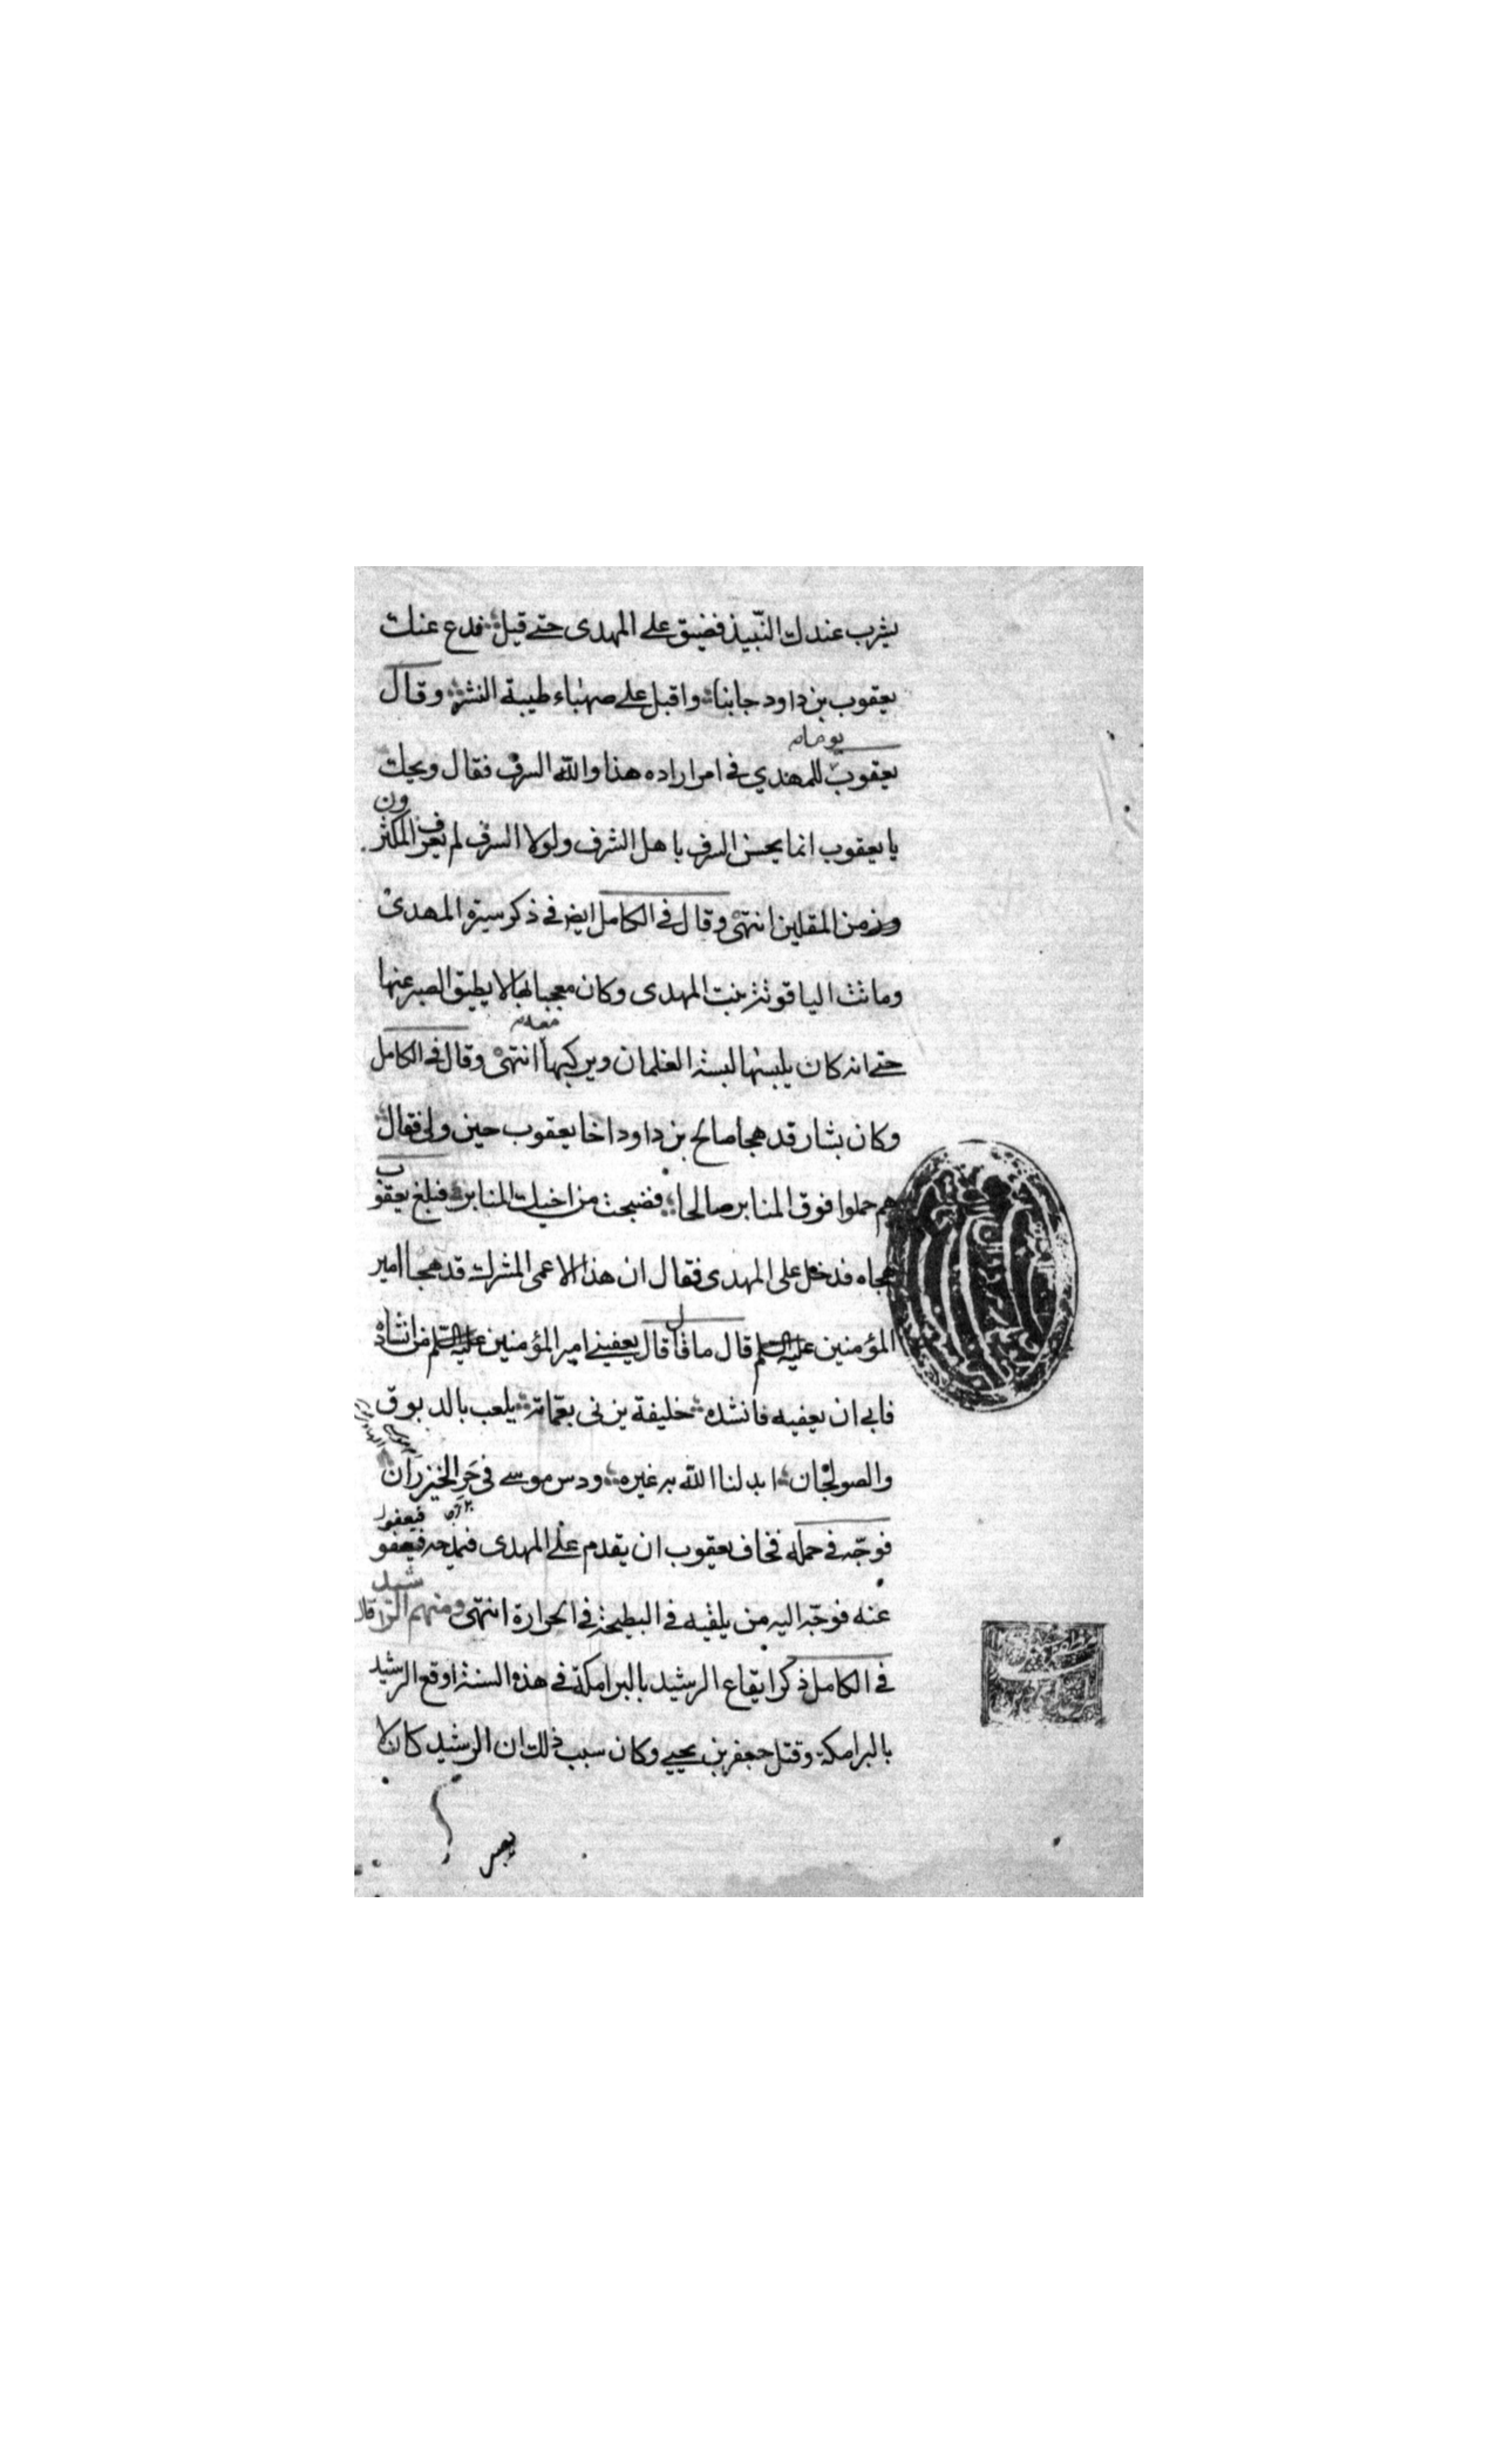 يشرب عندك النّبيذ فضيق على المهدى حتى قيل فدع عنك
يعقوب بن داود جابنا واقبل على صهباء طيبة النشر وقال
يوما
يعقوب للمهدي فى امر اراده هذا والله السرف فقال ويحك
يا يعقوب انما يحسن السرف باهل الشرف ولولا السرف لم يعرف المكثرون
من المقلين انتهى وقال فى الكامل ايض فى ذكر سيرة المهدى
وماتت الياقوتة بنت المهدى وكان معجبا بها لا يطيق الصبر عنها
معه
حتى انه كان يلبسها لبسة الغلمان ويركبها انتهى وقال فى الكامل
وكان بشار قد هجا صالح بن داود اخا يعقوب حين ولى فقال
هم حملوا فوق المنابر صالحا فضجت من اخيك المنابر فبلغ يعقوب
هجاه فدخل على المهدى فقال ان هذا الاعمى المشرك قد هجا امير
المؤمنين قال ما قال قال يعفينى امير المؤمنين من انشاده
فابى ان يعفيه فانشده خليفة يزنى بعمّاته يلعب بالدبوق
والصولجان ابدلنا الله به غيره ودس موسى فى حَرِ الخيزران
فوجّه فى حمله فخاف يعقوب ان يقدم على المهدى فيمدحه فيعفو
عنه فوجّه اليه من يلقيه فى البطيحة فى الحرارة انتهى ومنهم الرشيد قال
فى الكامل ذكر ايقاع الرشيد بالبرامكة فى هذه السنة اوقع الرشيد
بالبرامكة وقتل جعفر بن يحيى وكان سبب ذلك ان الرشيد كان لا
يصبر